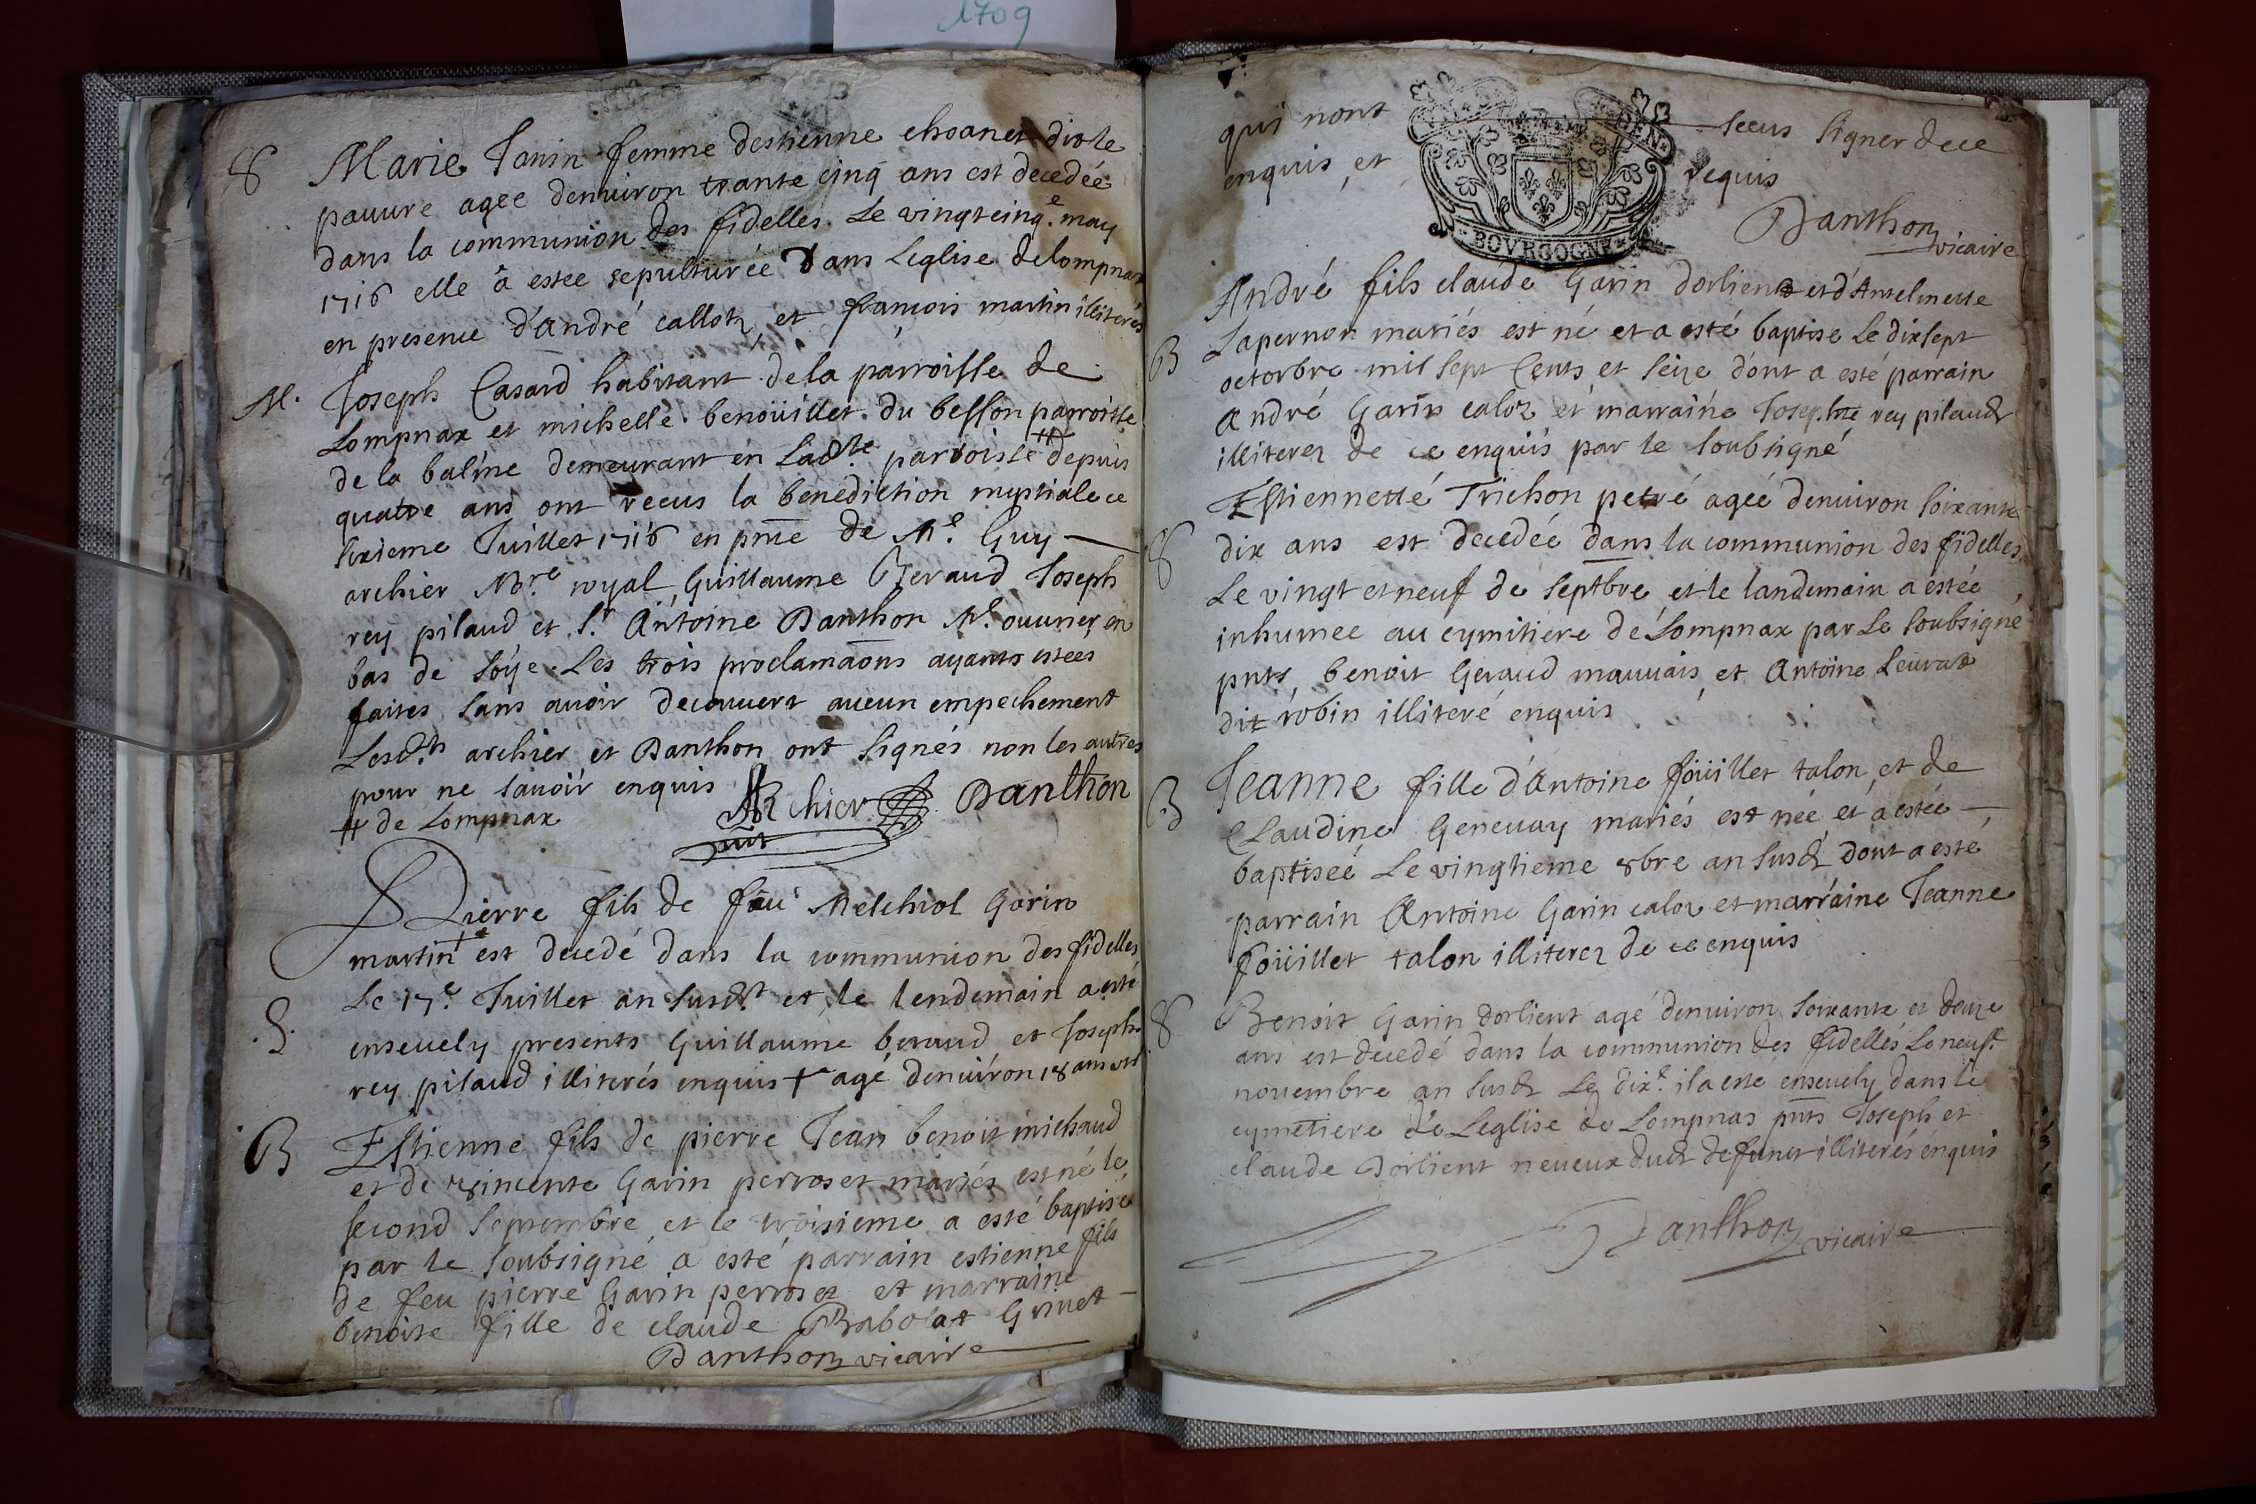 1709
S Marie Janin femme destienne choanet diote
pauure agee denuiron trante cinq ans est decedée
dans la communion des fidelles. Le vingt cinq.e may
1716 elle a estee sepulturée Dans Leglise de lompnax
en presence d'André callot et francois martin illiterés
M. Joseph Casard habitant de la parroisse de
Lompnax et michelle benoüillet du besson parroisse
de la balme demeurant en Ladte parroisse # depuis
quatre ans ont recus la benediction nuptiale ce
sixieme Juillet 1716 en pnce de Me. Guy —
archier Nre royal, Guillaume Beraud Joseph
rey pilaud et Sr Antoine Danthon Me. ouurier en
bas de Soÿe. Les trois proclamaons ayants estees
faites sans auoir decouuert aucun empechement
Lesdts archier et Danthon ont signés non les autres
pour ne sauoir enquis Archier Danthon
# de Lompnax
Pierre fils de feu Melchiol Garin
martin + est decedé dans la communion des fidelles
S. Le 17e. Juillet an susdt et le lendemain a esté
enseuely presents Guillaume beraud et Joseph
rey pilaud illiterés enquis + agé denuiron 18 ans
B Estienne fils de pierre Jean benoit michaud
et de vincente Garin perroset mariés est né le
second Septembre et le troisieme a esté baptisé
par le soubsigné a esté parrain estienne fils
de feu pierre Garin perroset et marraine
benoite fille de claude Rabolat Grinet —
Danthon vicaire
qui nont sceus signer de ce
enquis et requis
BOVRGOGNE
Danthon
vicaire
André fils claude Garin dorlient et d'Antelmette
B Lapernon mariés est né et a esté baptise Le dixsept
octorbre mil sept Cents et seize dont a esté parrain
André Garin caloz et marraine Josephte rey pilaud
illiterez de ce enquis par le soubsigné
Estiennette Trichon petré agéé denuiron soixante
S dix ans est decedée dans la communion des fidelles
Le vingt et neuf de Septbre et le landemain a estée
inhumee au cymitiere de Lompnax par Le soubsigné
pnts benoit Geraud mauuais et Antoine Leurat
dit robin illiteré enquis
Jeanne fille d'Antoine foüillet talon et de
B Claudine Geneuay mariés est née et a estée —
baptisée Le vingtieme 8bre an susd dont a esté
parrain Antoine Garin caloz et marraine Jeanne
foüillet talon illiterez de ce enquis
S Benoit Garin dorlient agé denuiron soixante et douze
ans est decedé dans la communion des fidellés Le neufe
nouembre an susd Le dixe. il a este enseuely dans Le
cymetiere de Leglise de Lompnas pnts Joseph et
claude Dorlient neueux dud defunct illiterés enquis
Danthon vicaire